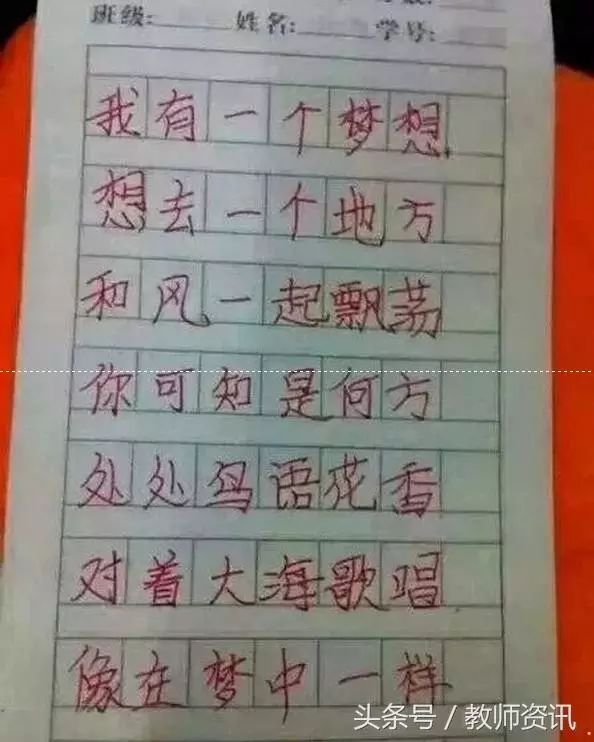 班级: 姓名: 学号:
我有一个梦想
想去一个地方
和风一起飘荡
你可知是何方
处处鸟语花香
对着大海歌唱
像在梦中一样
头条号／教师资讯